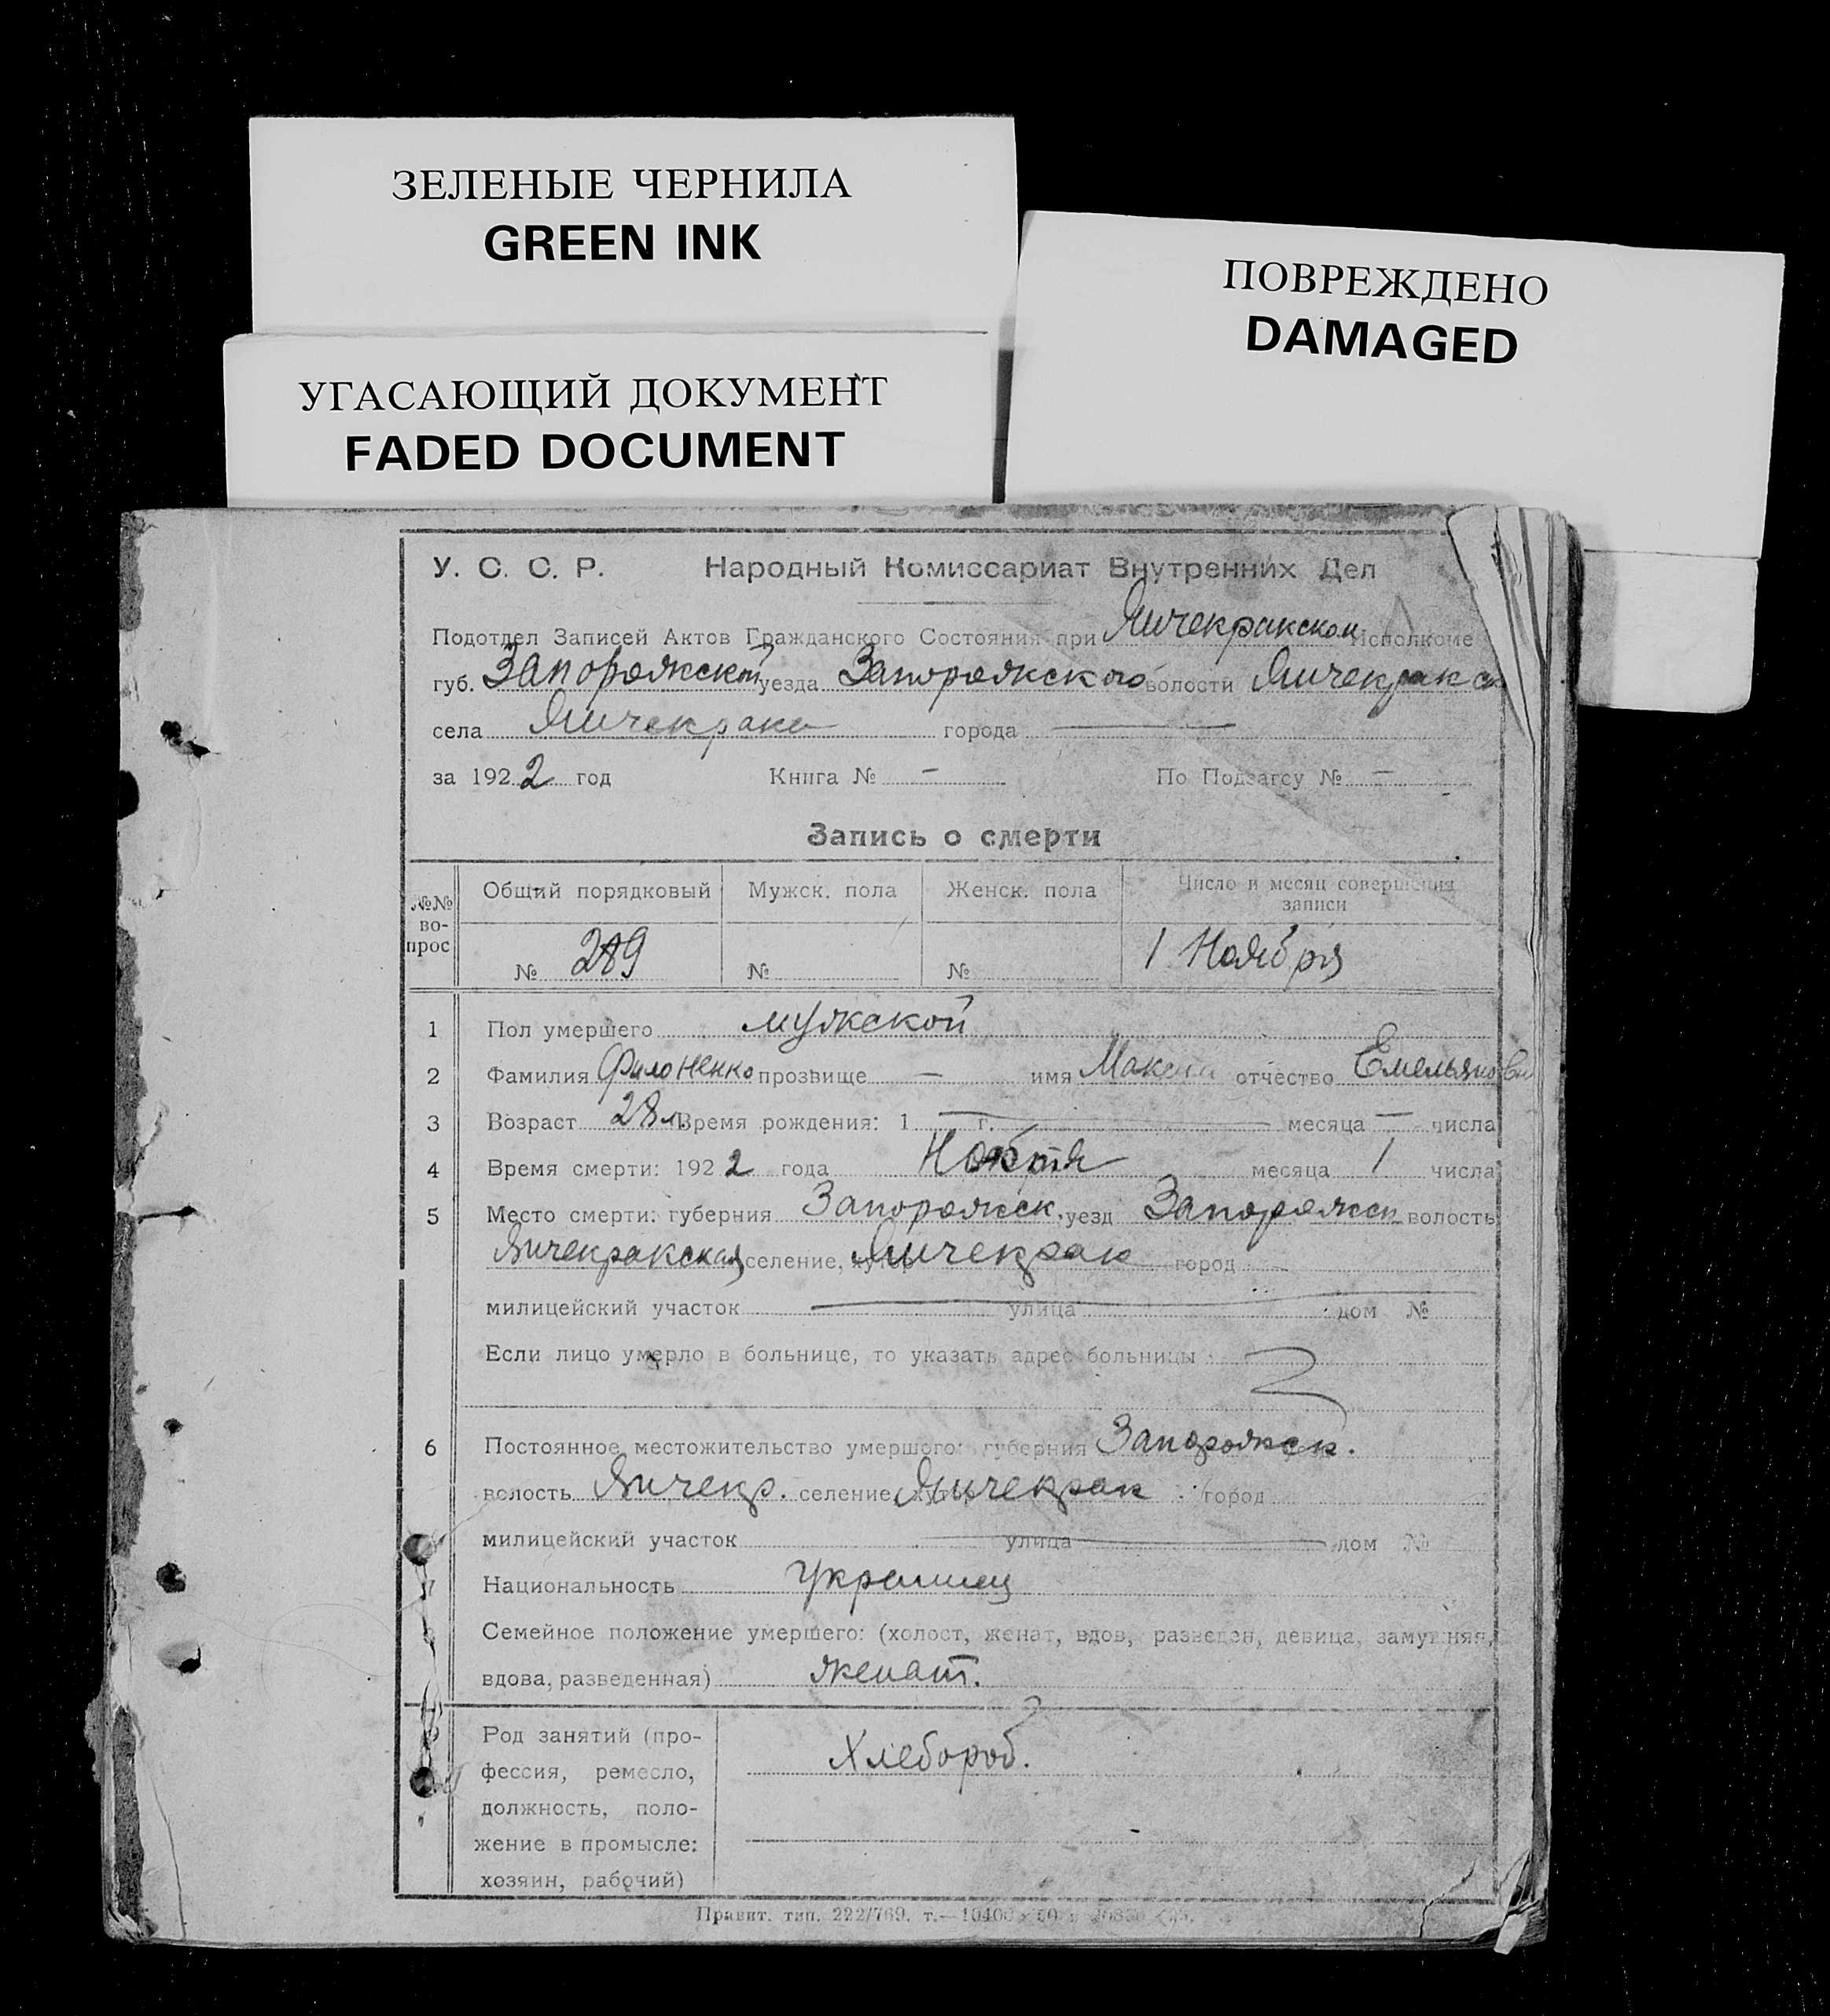 ЗЕЛЕНЫЕ ЧЕРНИЛА
GREEN INK
ПОВРЕЖДЕНО
DAMAGED
УГАСАЮЩИЙ ДОКУМЕНТ
FADED DOCUMENT
У. С. С. Р. Народный Комиссариат Внутренних Дел
Подотдел Записей Актов Гражданского Состояния при Янчекракском Исполкоме
губ. Запорожской уезда Запорожского волости Янчекракс
села Янчекрака города —
за 1922 год Книга № — По Подзагсу № —
Запись о смерти
№№ во-прос Общий порядковый Мужск. пола Женск. пола Число и месяц совершения записи
№ 289 № № 1 Ноября
1 Пол умершего мужской
2 Фамилия Филоненко прозвище — имя Максим отчество Емельянови
3 Возраст 28 л. Время рождения: 1 — г. — месяца — числа
4 Время смерти: 1922 года Ноября месяца 1 числа
5 Место смерти: губерния Запорожск. уезд Запорожск волость
Янчекракская селение, хутор Янчекрак город
милицейский участок — улица дом №
Если лицо умерло в больнице, то указать адрес больницы
6 Постоянное местожительство умершого: губерния Запорожск.
волость Янчекр. селение, хутор Янчекрак город
милицейский участок улица — дом №
7 Национальность Украинец
Семейное положение умершего: (холост, женат, вдов, разведен, девица, замужняя,
вдова, разведенная) женат.
Род занятий (про-
фессия, ремесло, Хлебороб.
должность, поло-
жение в промысле:
хозяин, рабочий)
Правит. тип. 222/769. т.—